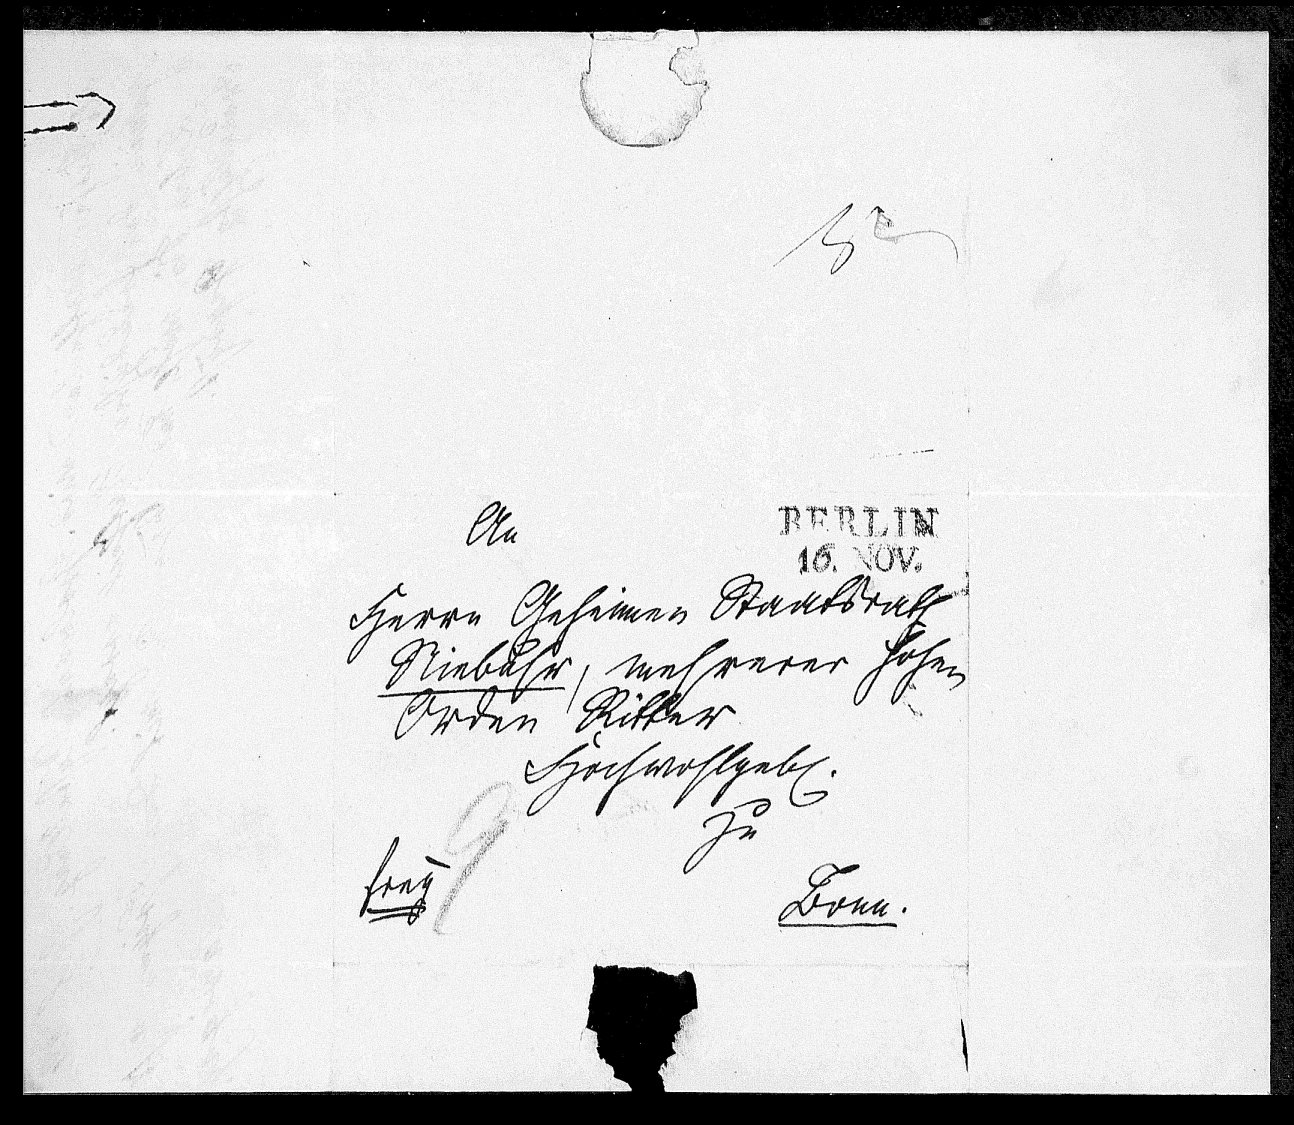 An
BERLIN
16. NOV.
Herrn Geheimen Staatsrath
Niebuhr, mehrerer hohen
Orden Ritter
Hochwohlgeb.
zu
frey
Bonn.